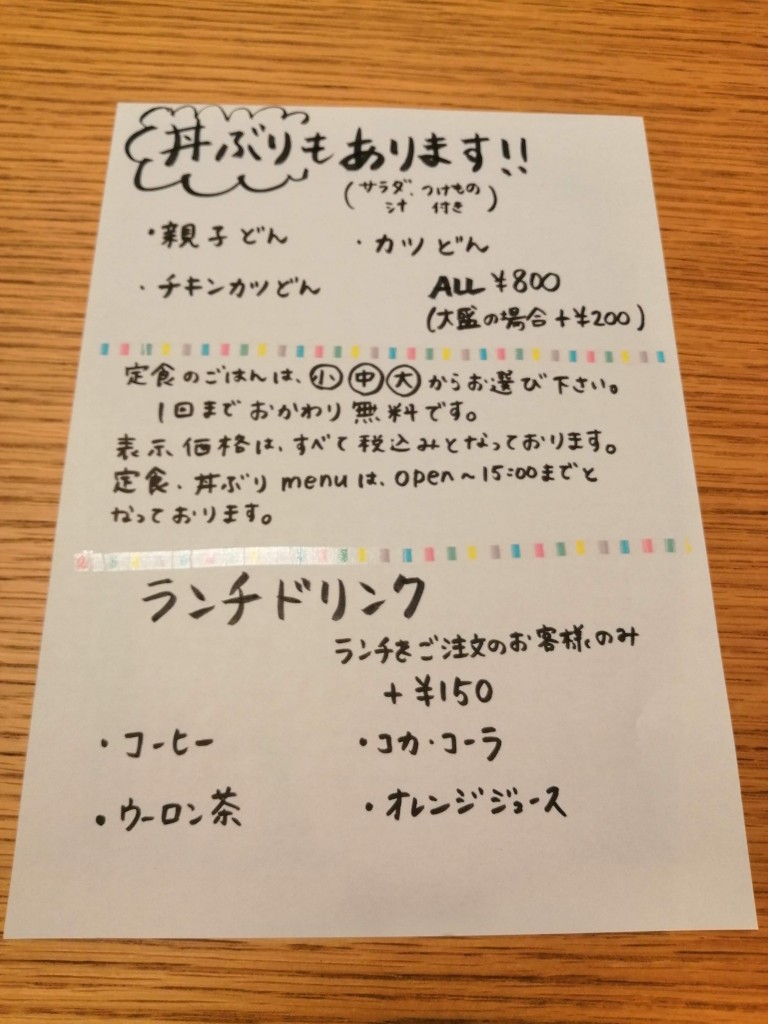 丼ぶりもあります!!
(サラダ、つけもの
汁 付き)
・親子どん ・カツどん
・チキンカツどん ALL ¥800
(大盛の場合+¥200)
定食のごはんは、小 中 大 からお選び下さい。
1回までおかわり無料です。
表示価格は、すべて税込みとなっております。
定食・丼ぶりmenuは、open~15:00までと
なっております。
ランチドリンク
ランチをご注文のお客様のみ
+¥150
・コーヒー ・コカ・コーラ
・ウーロン茶 ・オレンジジュース